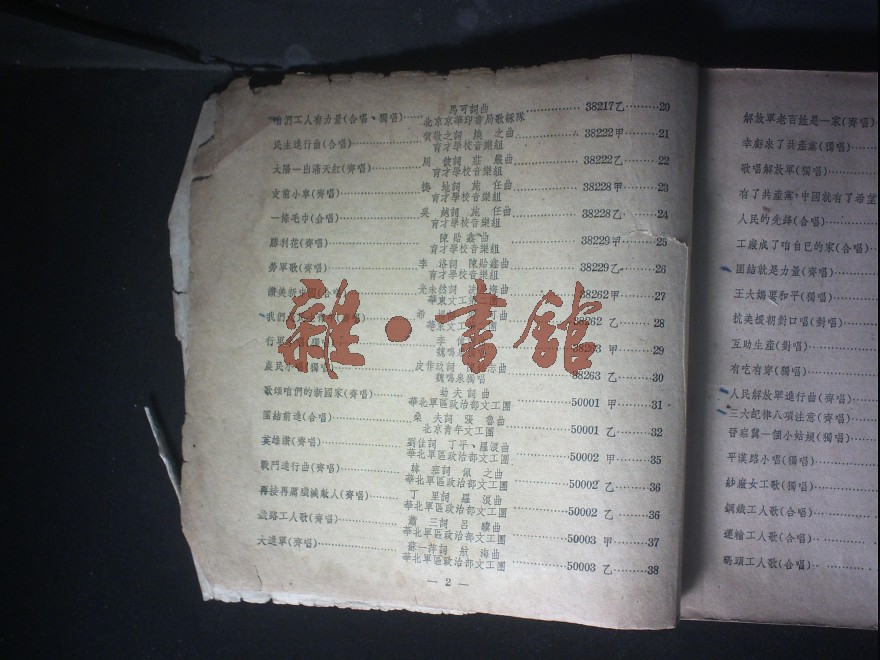 馬可詞曲
咱們工人有力量(合唱、獨唱) 38217乙 20
北京京華印書局歌詠隊
賀敬之詞 煥之曲
民主進行曲(合唱) 38222甲 21
育才學校音樂組
太陽一出滿天紅(齊唱) 莊嚴曲 38222乙 22
育才學校音樂組
支前小車(齊唱) 施任曲 38228甲 23
育才學校音樂組
一條毛巾(合唱) 吳越詞 施任曲 38228乙 24
育才學校音樂組
勝利花(齊唱) 陳貽鑫曲 38229甲 25
育才學校音樂組
勞軍歌(齊唱) 李洛詞 陳貽鑫曲 38229乙 26
育才學校音樂組
讚美新中國(合唱) 光未然詞 38262甲 27
華東文工
我們 38262乙 28
行軍 29
魏鳴泉
農民小唱(獨唱) 38263乙 30
魏鳴泉獨唱
歌頌咱們的新國家(齊唱) 劫夫詞曲 50001甲 31
華北軍區政治部文工團
團結前進(合唱) 桑夫詞 張魯曲 50001乙 32
北京青年文工團
英雄讚(齊唱) 劉佳詞 丁平、羅浪曲 50002甲 35
華北軍區政治部文工團
戰鬥進行曲(齊唱) 韓塞詞 佩之曲 50002乙 36
華北軍區政治部文工團
再接再厲殲滅敵人(齊唱) 丁里詞 羅浪曲 50002乙 36
華北軍區政治部文工團
鐵路工人歌(齊唱) 蕭三詞 呂驥曲 50003甲 37
華北軍區政治部文工團
大進軍(齊唱) 蘇一萍詞 航海曲 50003乙 38
華北軍區政治部文工團
— 2 —
解放軍老百姓是一家(齊唱)
幸虧來了共產黨(獨唱)
歌唱解放軍(獨唱)
有了共產黨,中國就有了希望
人民的先鋒(合唱)
工廠成了咱自己的家(合唱)
團結就是力量(齊唱)
王大媽要和平(獨唱)
抗美援朝對口唱(對唱)
互助生產(對唱)
有吃有穿(獨唱)
人民解放軍進行曲(齊唱)
三大紀律八項注意(齊唱)
晉察冀一個小姑娘(獨唱)
平漢路小唱(獨唱)
紗廠女工歌(獨唱)
鋼鐵工人歌(合唱)
運輸工人歌(合唱)
碼頭工人歌(合唱)
雜·書館